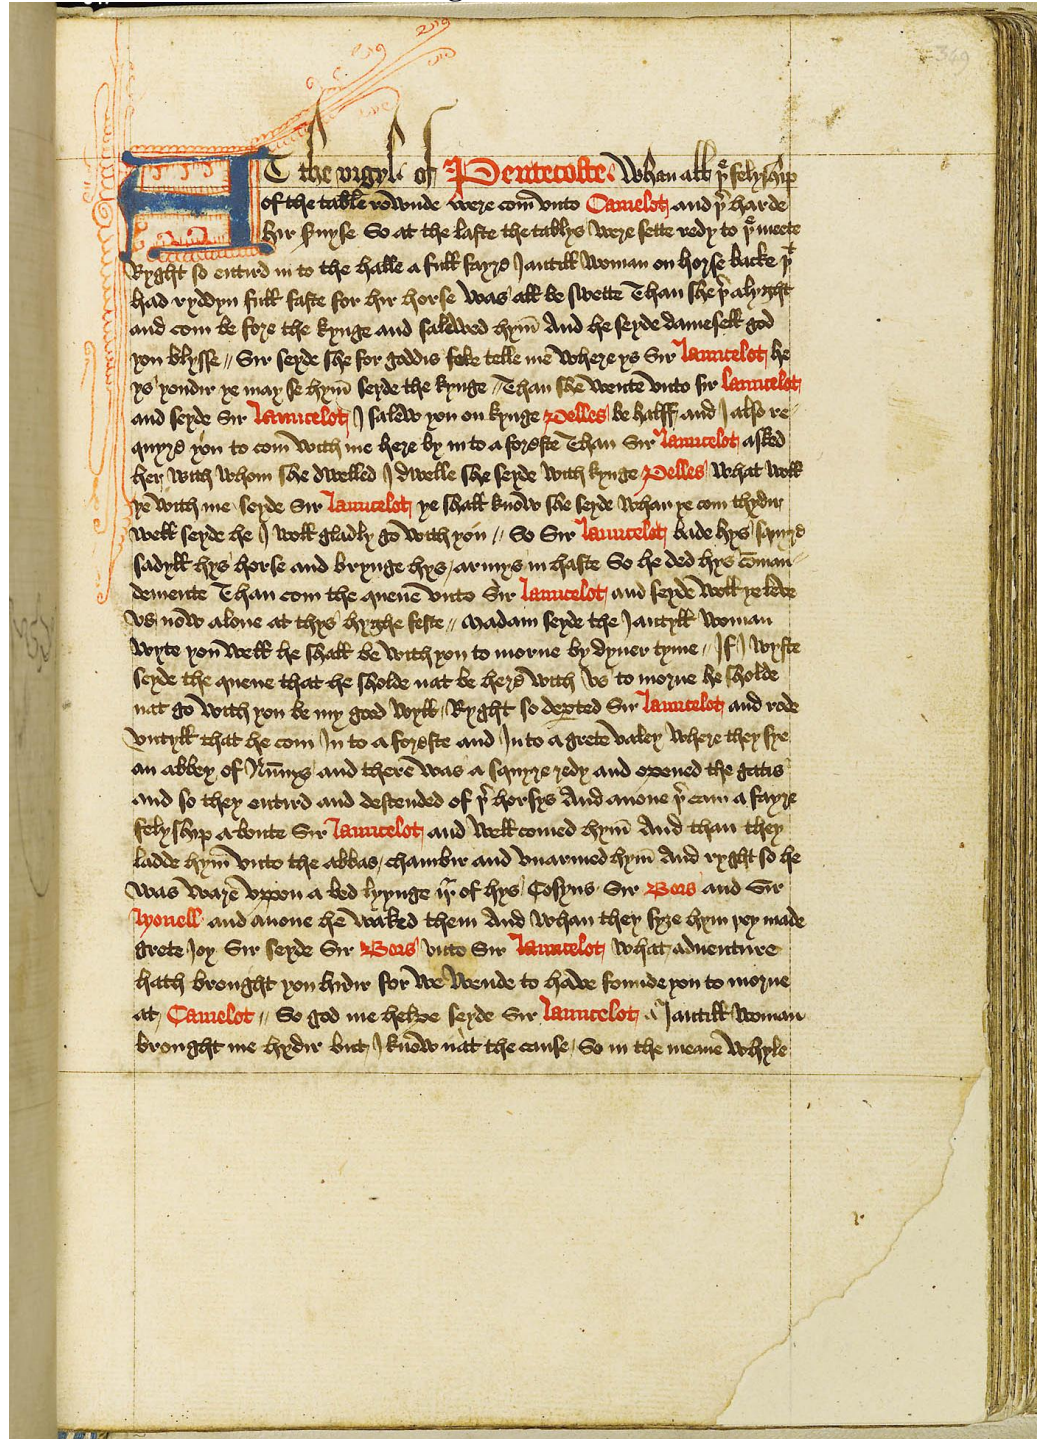 349
AT the vigyll of Pentecoste. Whan all þe felyshipp
of the table rownde were com vnto Camelot and þr harde
hir seruyse So at the laste the tablys were sette redy to þe meete
Ryght so entird in to the halle a full fayre Jantill woman on horse backe þt
had ryddyn full faste for hir horse was all be swette Than she þr alyght
and com be fore the kynge and salewed hym̄ And he seyde damesell god
you blysse // Sir seyde she for goddis sake telle me where ys Sir launcelot he
ys yondir ye may se hym̄ seyde the kynge // Than she wente vnto sir launcelot
and seyde Sir launcelot J salew you on kynge Pelles be halff and J also re-
quyre you to com with me here by in to a foreste Than Sir launcelot asked
her with whom she dwelled J dwelle she seyde with kynge Pelles what woll
ye with me seyde Sir launcelot ye shall know she seyde whan ye com thydir
well seyde he J woll gladly go with you // So Sir launcelot bade hys squyre
sadyll hys horse and brynge hys armys in haste So he ded hys cōman-
demente Than com the quene vnto Sir launcelot and seyde woll ye leve
vs now alone at thys hyghe feste // Madam seyde the Jantyll woman
wyte you well he shall be with you to morne by dyner tyme // Jf J wyste
seyde the quene that he sholde nat be here with vs to morne he sholde
nat go with you be my good wyll Ryght so deꝑted Sir launcelot and rode
vntyll that he com Jn to a foreste and Jn to a grete valey where they sye
an abbey of Nūnys and there was a squyre redy and opened the gatis
and so they entird and descended of þr horsys And anone þr cam a fayre
felyshyp aboute Sir launcelot and well comed hym̄ And than they
ladde hym̄ vnto the abbas chambir and vnarmed hym̄ And ryght so he
was ware vppon a bed lyynge ij of hys Cosyns Sir Bors and Sir
lyonell and anone he waked them And whan they syze hym þey made
grete Joy Sir seyde Sir Bors vnto Sir launcelot what adventure
hath brought you hidir for we wende to have founde you to morne
at Camelot // So god me helpe seyde Sir launcelot a Jantill woman
brought me hydir but J know nat the cause So in the meane whyle